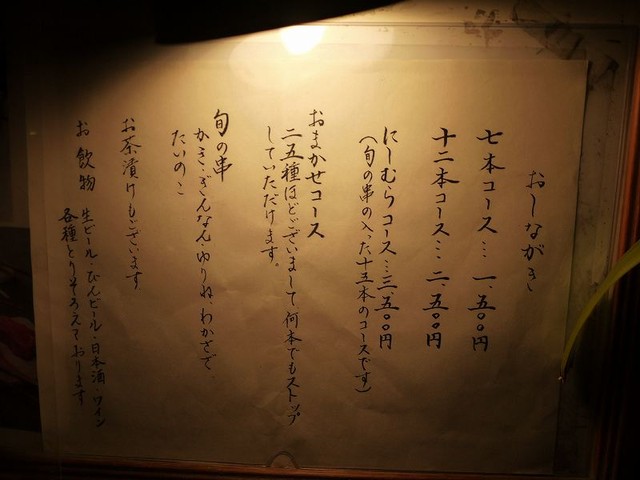 おしながき
七本コース…一、五〇〇円
十二本コース…二、五〇〇円
にしむらコース…三、五〇〇円
(旬の串の入った十五本のコースです)
おまかせコース
二五種ほどございまして何本でもストップ
していただけます。
旬の串
かき・ぎんなん・ゆりね・わかさぎ・
たいのこ
お茶漬けもございます
お飲物
生ビール・びんビール・日本酒・ワイン
各種とりそろえております